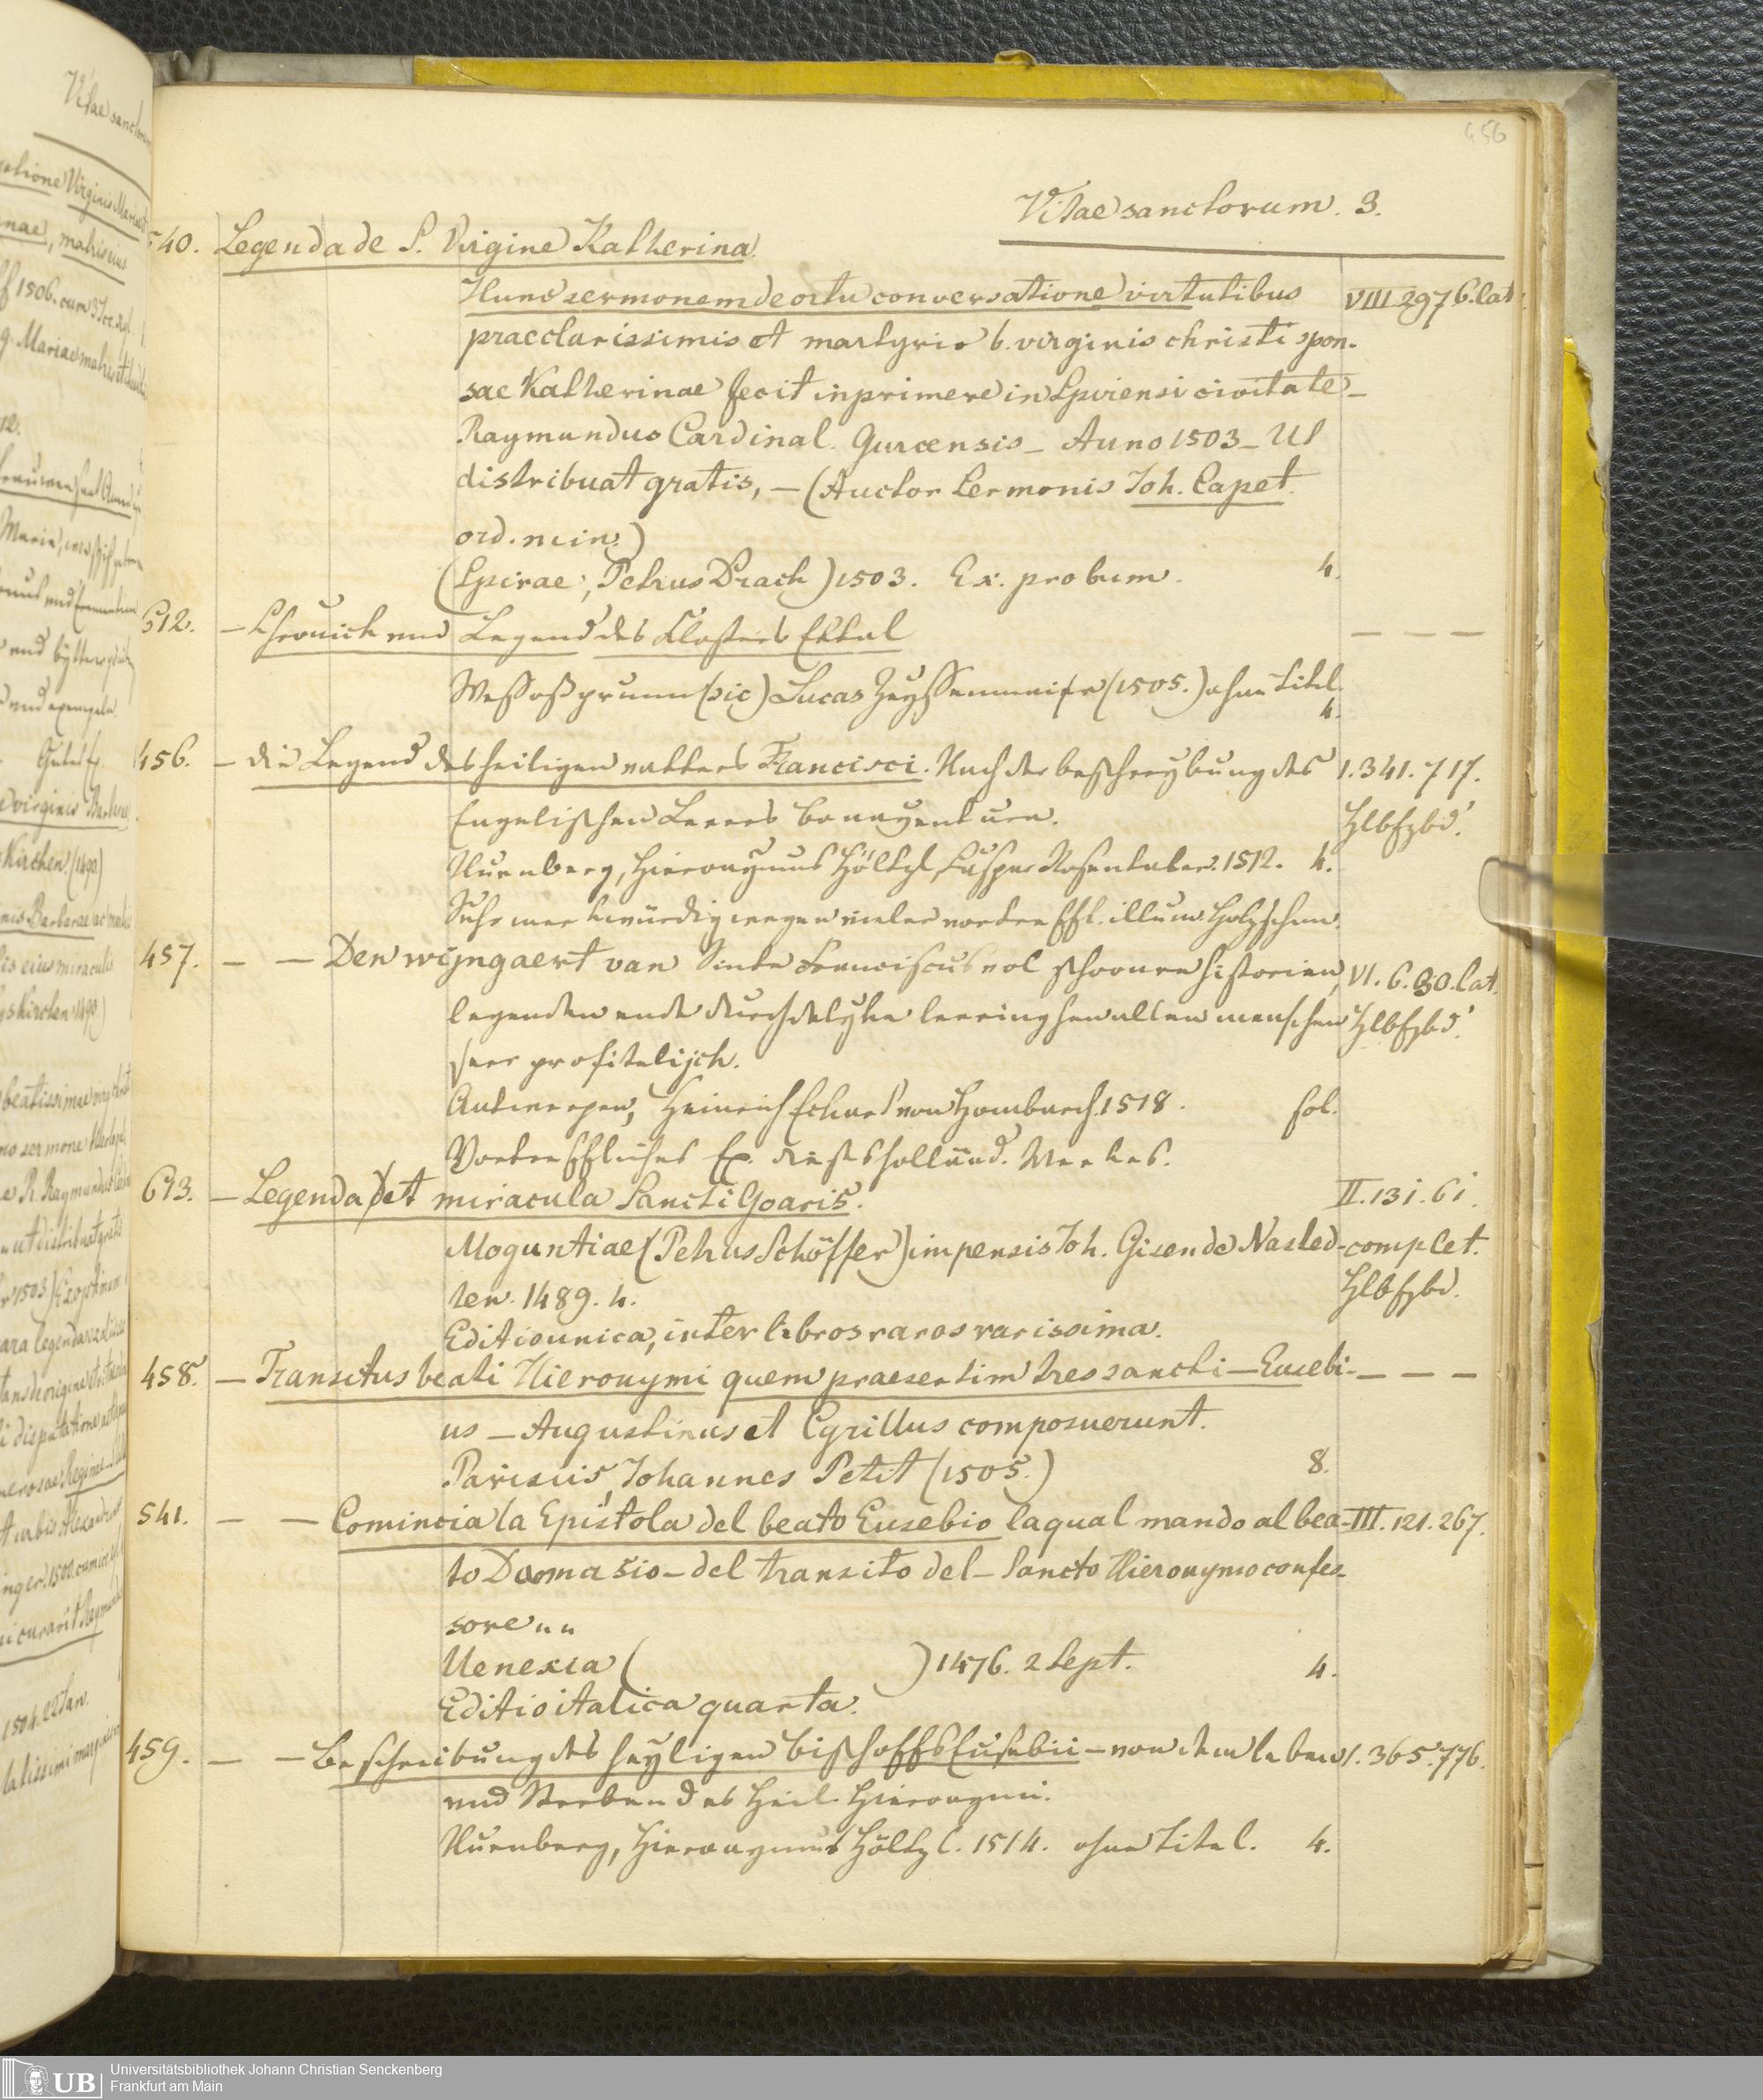 456
Vitae sanctorum. 3.
540. Legenda de S. Virgine Katherina.
Hunc sermonem de ortu conversatione virtutibus VIII 297 6. lat.
praeclarissimis et martyrio b. virginis christi spon-
sae Katherinae fecit inprimere in Spirensi civitate –
Raymundus Cardinal. Gurcensis – Anno 1503 – Ut
distribuat gratis, – (Auctor Sermonis Joh. Capet.
ord. min.)
(Spirae, Petrus Drach) 1503. Ex. probum. 4.
612. – Chronick und Legend des Closters Ettal – – –
Wessoßprunn (sic) Lucas Zeyssenmair (1505.) ohne Titel.
4.
456. – die Legend des heiligen vatters Francisci. Nach der beschreybung des 1.341.717.
Engelischen Lerers bonaventura. Hlbfzbd.
Nürnberg, Hieronymus Höltzl, Caspar Rosentaler. 1512. 4.
Sehr merkwürdig wegen vieler vortreffl. illum. Holzschn.
457. – – Den wijngaert van Sinte Franciscus vol schoonre historien, VI. 6. 30. lat.
legenden ende duechdelyke leeringhen allen menschen Hlbfzbd.
seer profitelijck.
Antwerpen, Heinrich Eckert von Homburch. 1518. fol.
Vortreffliches Ex. dieses holländ. Werkes.
693. – Legenda et miracula Sancti Goaris. II. 131. 61.
Moguntiae (Petrus Schöffer) impensis Joh. Gisen de Nasted- complet.
ten. 1489. 4. Hlbfzbd.
Editio unica, inter libros raros rarissima.
458. – Transitus beati Hieronymi quem praesertim tres sancti – Eusebi- – – –
us – Augustinus et Cyrillus composuerunt.
Parisiis, Johannes Petit (1505.) 8.
541. – – Comincia la Epistola del beato Eusebio laqual mando al bea- III. 121. 267.
to Damasio – del transito del – Sancto Hieronymo confes-
sore „ „
Uenexia ( ) 1476. 2 Sept. 4.
Editio italica quarta.
459. – – beschreibung des heyligen bischoffs Eusebii – von dem leben 1. 365. 776.
und Sterben des Heil. Hieronymi.
Nürnberg, Hieronymus Höltzl. 1514. ohne Titel. 4.
UB
Universitätsbibliothek Johann Christian Senckenberg
Frankfurt am Main